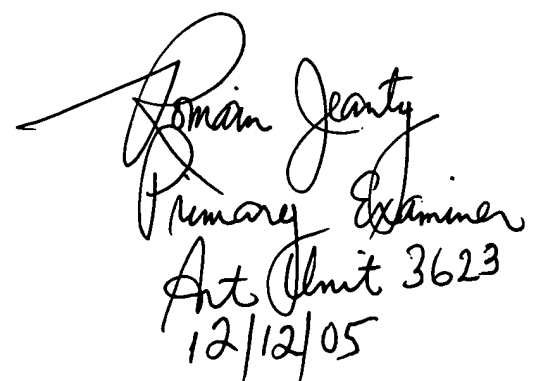 Romain Jeanty
Primary Examiner
Art Unit 3623
12/12/05